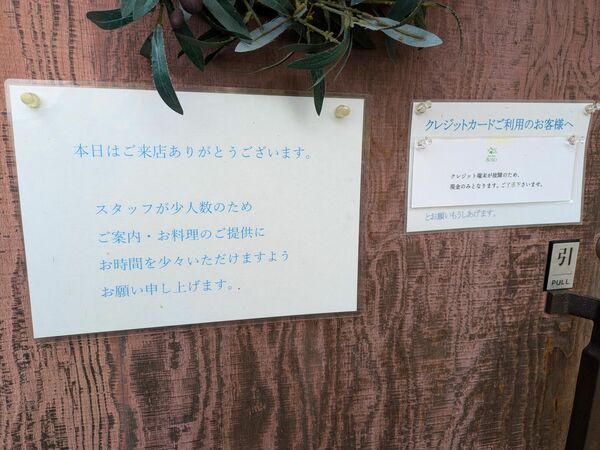 本日はご来店ありがとうございます。
スタッフが少人数のため
ご案内・お料理のご提供に
お時間を少々いただけますよう
お願い申し上げます。
クレジットカードご利用のお客様へ
クレジット端末が故障のため、
現金のみとなります。ご了承下さいませ。
とお願いもうしあげます。
引
PULL